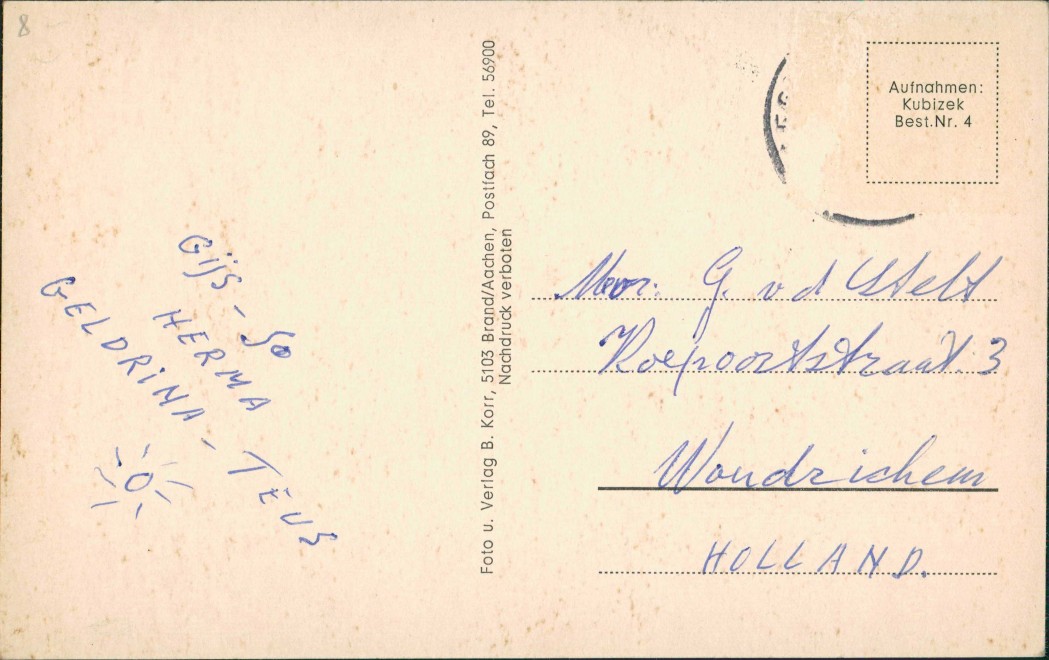 8
GIJS - JO
HERMA
GELDRINA - TEUS
Foto u. Verlag B. Korr, 5103 Brand/Aachen, Postfach 89, Tel. 56900
Nachdruck verboten
Aufnahmen:
Kubizek
Best.Nr. 4
G. v d Stelt
Koepoortstraat. 3
Woudrichem
HOLLAND.